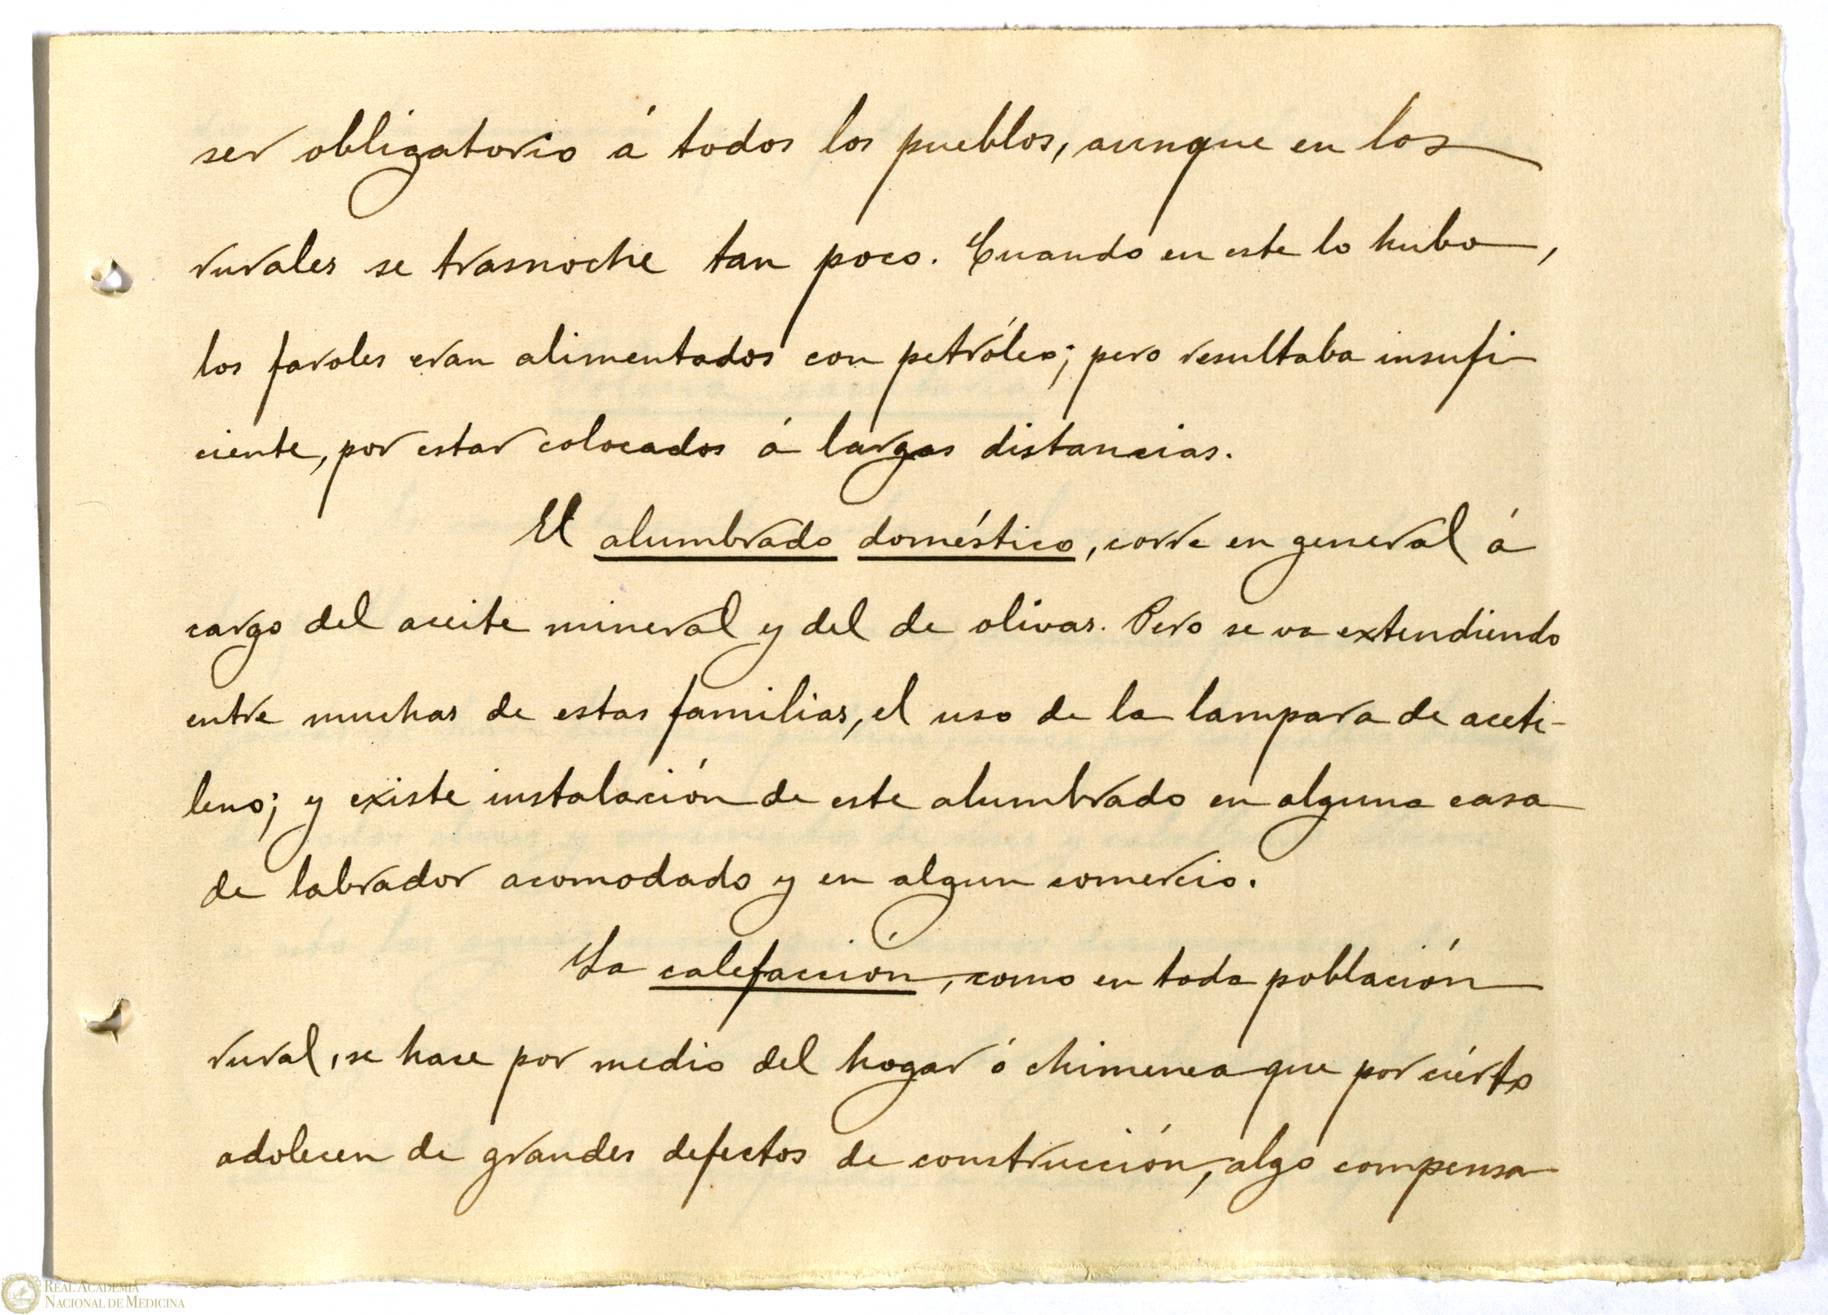 ser obligatorio á todos los pueblos, aunque en los
rurales se trasnoche tan poco. Cuando en este lo hubo,
los faroles eran alimentados con petróleo; pero resultaba insufi-
ciente, por estar colocados á largas distancias.
El alumbrado doméstico, corre en general á
cargo del aceite mineral y del de olivas. Pero se va extendiendo
entre muchas de estas familias, el uso de la lampara de aceti-
leno; y existe instalación de este alumbrado en alguna casa
de labrador acomodado y en algun comercio.
La calefacción, como en toda población
rural, se hace por medio del hogar ó chimenea que por ciérto
adolecen de grandes defectos de construcción, algo compensa
REAL ACADEMIA
NACIONAL DE MEDICINA